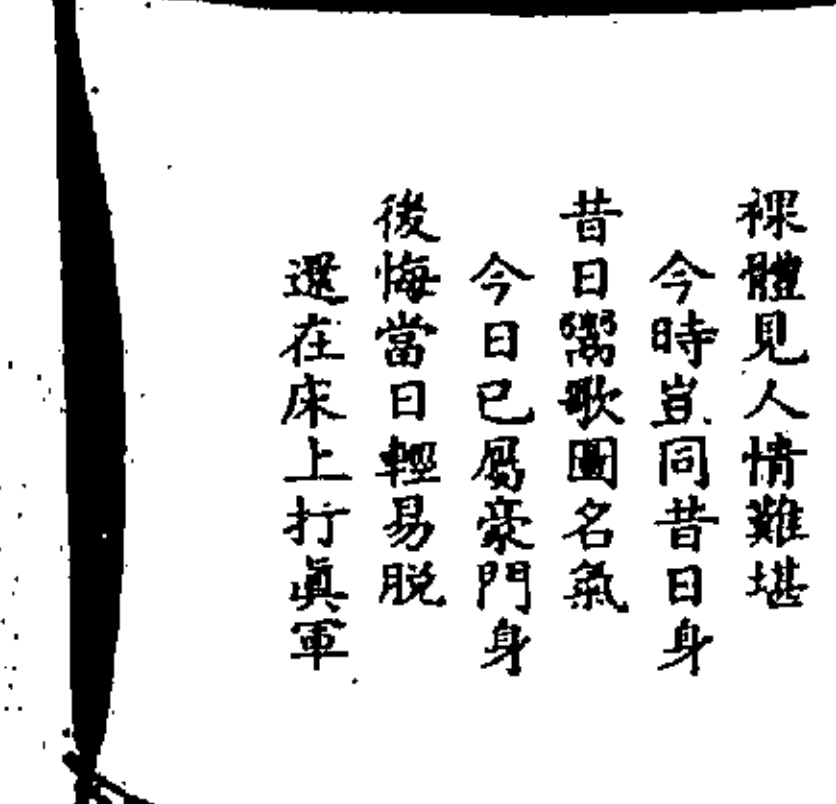 裸體見人情難堪
今時豈同昔日身
昔日鬻歌圖名氣
今日已屬豪門身
後悔當日輕易脫
還在床上打眞軍